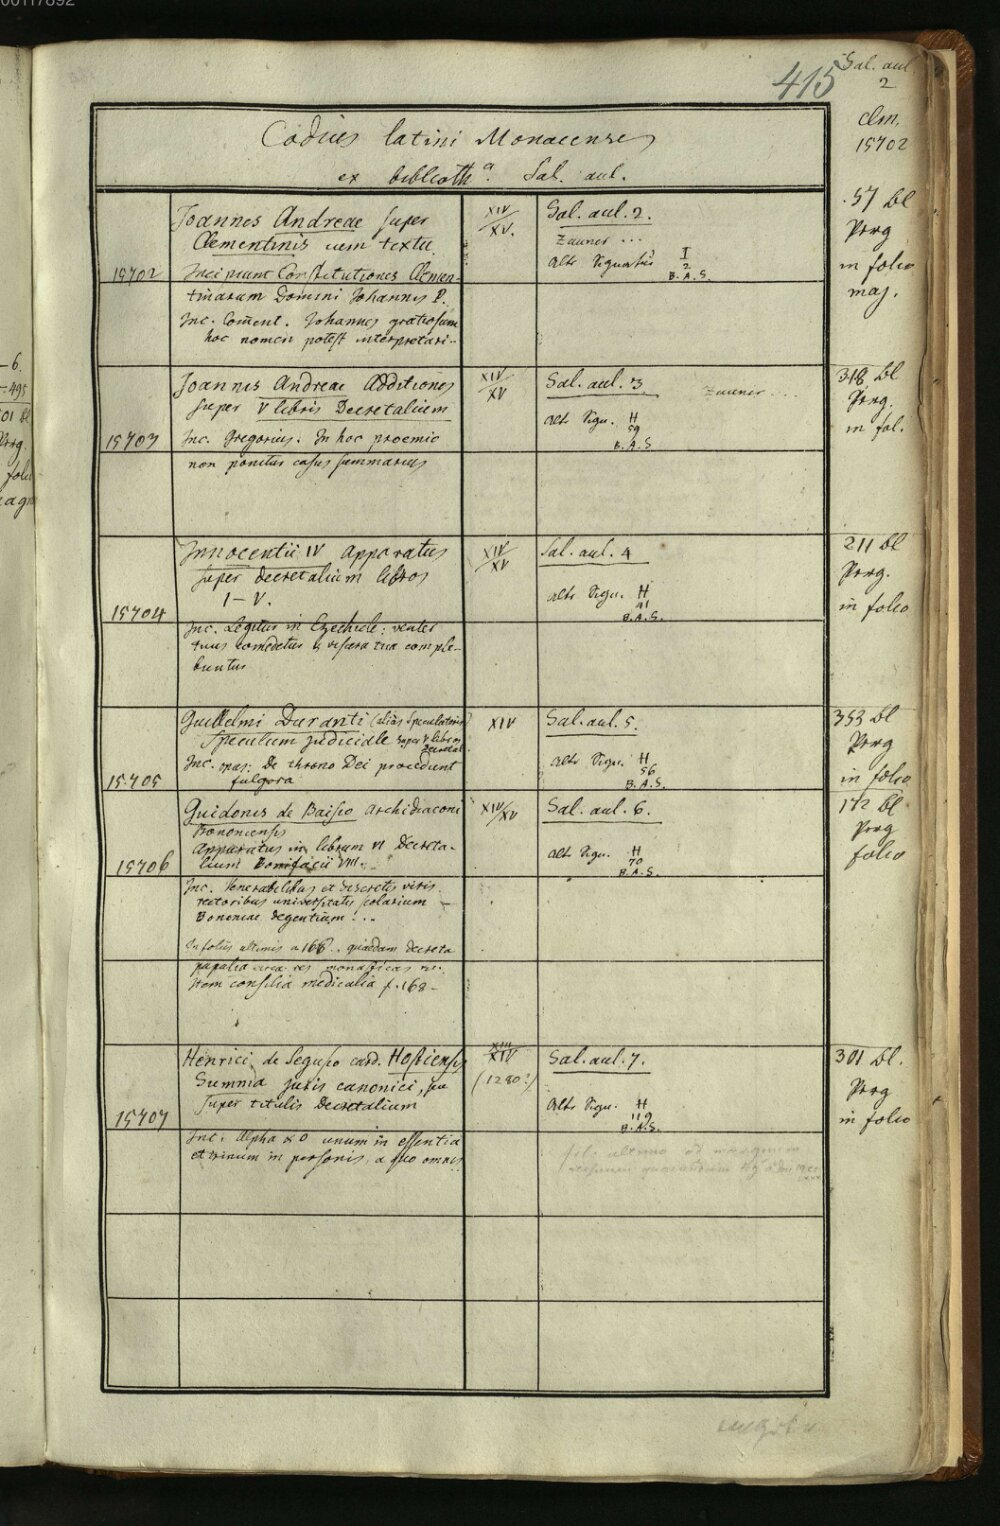 00117892
415
Sal. aul.
2
clm.
15702
Codices latini Monacenses
ex biblioth.ª Sal. aul.
Joannes Andreae super
Clementinis cum textu
15702
Incipiunt Constitutiones Clemen-
tinarum Domini Johannis P.
Inc. Coment. Johannes gratiosum
hoc nomen potest interpretari..
XIV/XV.
Sal. aul. 2.
Zauner ...
Alte Signatur I
2
B.A.S.
57 bl
Perg
in folio
maj.
Joannis Andreae Additiones
super V libris Decretalium
15703
Inc. Gregorius. In hoc proemio
non ponitur casus summarius
XIV/XV
Sal. aul. 3
Zauner ...
alte Sign. H
59
B.A.S
318 bl
Perg.
in fol.
Innocentii IV Apparatus
super decretalium libros
I–V.
15704
Inc. Legitur in Ezechiele: venter
tuus comedetur & viscera tua comple-
buntur
XIV/XV
Sal. aul. 4
alte Sign. H
41
B.A.S.
211 bl
Perg.
in folio
Guillelmi Duranti (alias Speculatoris)
Speculum judiciale super V libros
Decretal.
15705
Inc. opus: De throno Dei procedunt
fulgora
XIV
Sal. aul. 5.
alte Sign. H
56
B.A.S.
353 bl
Perg
in folio
Guidonis de Baisio Archidiaconi
Bononiensis
Apparatus in librum VI Decreta-
lium Bonifacii VIII.
15706
Inc. Venerabilibus et discretis viris
rectoribus universitatis scolarium –
Bononiae degentium! ..
In foliis ultimis a 166 .. quaedam decreta
papalia circa res monasticas
Item consilia medicalia f. 168 –
XIV/XV
Sal. aul. 6.
alte Sign. H
70
B.A.S.
172 bl
Perg
folio
Henrici de Segusio card. Hostiensis
Summa juris canonici, seu
super titulis Decretalium
15707
Inc. Alpha & O unum in essentia
et trinum in personis, a quo omnis
XIII
XIV
(1280?)
Sal. aul. 7.
Alte Sign. H
119
B.A.S.
folio ultimo ad marginem
301 bl.
Perg
in folio